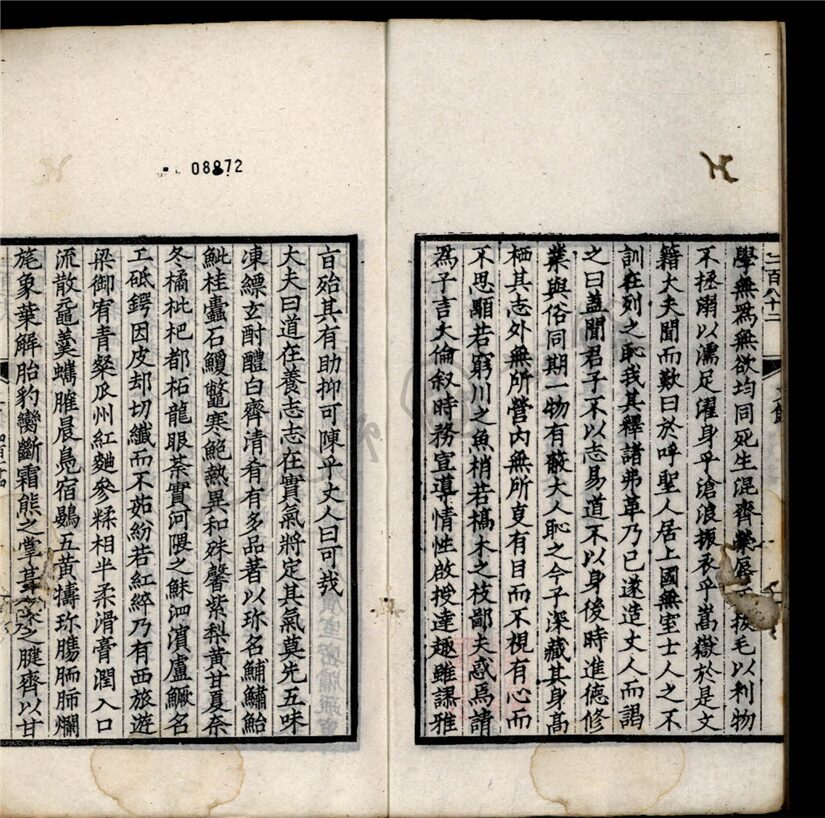 二百八十二
學無爲無欲均同死生混齊榮辱不拔毛以利物
不拯溺以濡足濯身乎滄浪振衣乎嵩嶽於是文
籍大夫聞而歎曰於呼聖人居上國無室士人之不
訓在列之恥我其釋諸弗革乃已遂造丈人而謁
之曰蓋聞君子不以志易道不以身後時進德修
業與俗同期一物有蔽大人恥之今子深藏其身高
栖其志外無所營內無所叓有目而不視有心而
不思顒若窮川之魚梢若槁木之枝鄙夫惑焉請
爲子言大倫叙時務宣導情性啟授達趣雖課雅
08872
言殆其有助抑可陳乎丈人曰可哉
大夫曰道在養志志在實氣將定其氣莫先五味
凍縹玄酎醴白齊清肴有多品著以珍名鯆鱐鮐
魮桂蠹石鰒鼈寒鮑熱異和殊馨紫梨黃甘夏奈
冬橘枇杷都柘龍眼荼實河隈之鮇泗濱盧鱖名
工砥鍔因皮却切纖而不茹紛若紅綷乃有西旅遊
梁御宥青粲瓜州紅麯參糅相半柔滑膏潤入口
流散黿羹蠵臛晨鳧宿鷃五黃擣珍腸腼肺爛
旄象華解胎豹臠斷霜熊之掌 之腱齊以甘